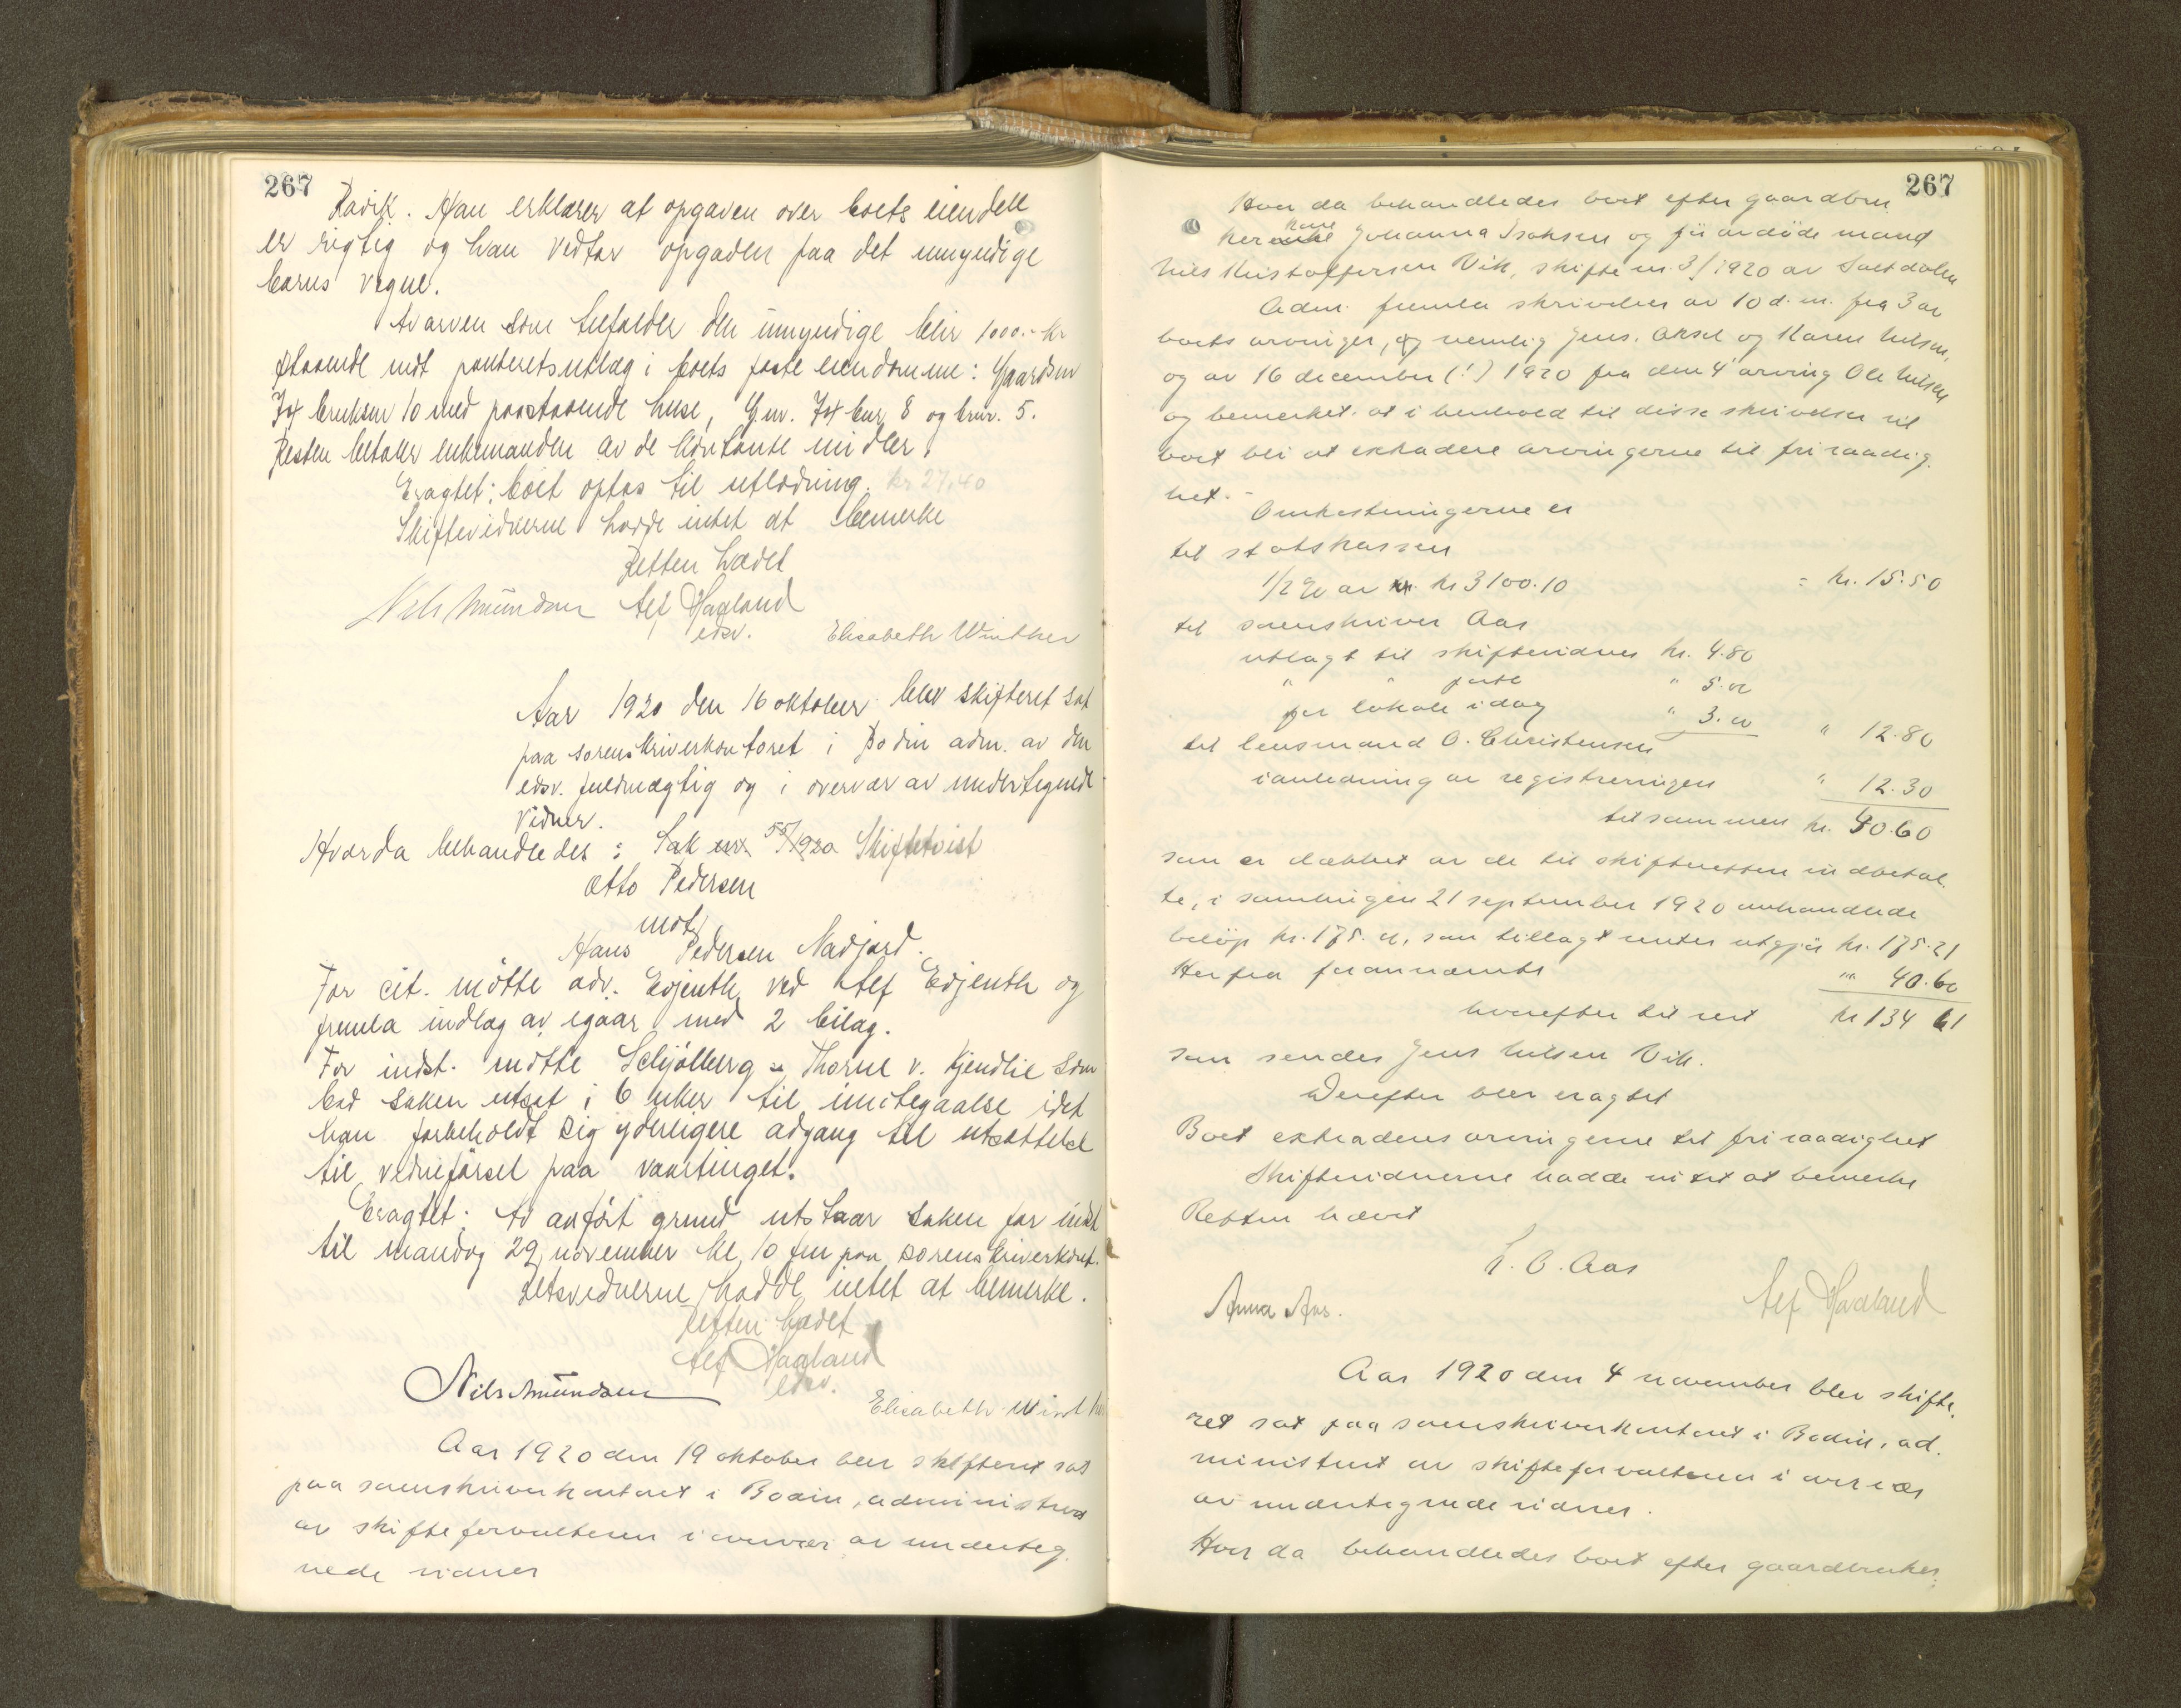 267
Ravik. Han erklærer at opgaven over boets eiendele
er rigtig og han vedtar opgaven paa det umyndige
barns vegne.
Av arven som tilfalder den umyndige blir 1000.- kr
staaende mot panteretsutlæg i boets faste eiendomme: Gaardsnr
74 bruksnr 10 med paastaaende huse, G.nr. 74 bnr 8 og brnr. 5.
Resten betaler enkemanden av de kontante midler.
Eragtet: boet optas til utlodning. kr 27.40
Skiftevidnerne hadde intet at bemerke
Retten hævet
Nils Amundsen Alf Hagland
edsv. Elisabeth Winther
Aar 1920 den 16 oktober blev skifteret sat
paa sorenskriverkontoret i Bodin adm. av den
edsv. fuldmægtig og i overvær av undertegnede
vidner.
Hvorda behandledes: Sak nr. 55/1920 Skiftetvist
Otto Pedersen
mot
Hans Pedersen Nadjord.
For cit. møtte adv. Evjenth ved Alf Evjenth og
fremla indlæg av igaar med 2 bilag.
For indst. møtte Schjølberg & Thorne v. Kjendlie som
bad saken utsat i 6 uker til imøtegaaelse idet
han forbeholdt sig yderligere adgang til utsættelse
til vidneførsel paa vaartinget.
Eragtet: Av anført grund utstaar saken for indst
til mandag 29 november kl. 10 fm paa sorenskriverkont.
Retsvidnerne hadde intet at bemerke.
Retten hævet
Alf Hagland
edsv.
Nils Amundsen
Elisabeth Winther
Aar 1920 den 19 oktober blev skifteret sat
paa sorenskriverkontoret i Bodin, administrert
av skifteforvalteren i overvær av underteg
nede vidner
267
Hvor da behandledes boet efter gaardbru
ker kone Johanna Isaksen og før avdøde mand
Nils Kristoffersen Vik, skifte nr. 3/1920 av Saltdalen
Adm. fremla skrivelser av 10 d. m. fra 3 av
boets arvinger, og nemlig Jens, Aksel og Karen Nilsen,
og av 16 december (!) 1920 fra den 4' arving Ole Nilsen
og bemerket at i henhold til disse skrivelser vil
boet bli at extradere arvingerne til fri raadig
het.-
Omkostningerne er
til statskassen
1/2 % av kr 3100.10 = kr. 15.50
til sorenskriver Aas
utlagt til skiftevidner kr. 4.80
" " porto " 5.00
for lokale idag " 3.00 " 12.80
til lensmand O. Christensen
i anledning av registreringen " 12.30
tilsammen kr. 40.60
som er dækket av de til skifteretten indbetal
te, i samlingen 21 september 1920 omhandlede
beløp kr. 175.00, som tillagt renter utgjør kr. 175.21
Herfra forannævnte " 40.60
hvorefter til rest kr 134 61
som sendes Jens Nilsen Vik.
Derefter blev eragtet
Boet extraderes arvingerne til fri raadighet
Skiftevidnerne hadde intet at bemerke
Retten hævet
L. O. Aas
Anna Aas. Alf Hagland
Aar 1920 den 4 november blev skifte
ret sat paa sorenskriverkontoret i Bodin, ad
ministrert av skifteforvalteren i overvær
av undertegnede vidner.
Hvor da behandledes boet efter gaardbruker